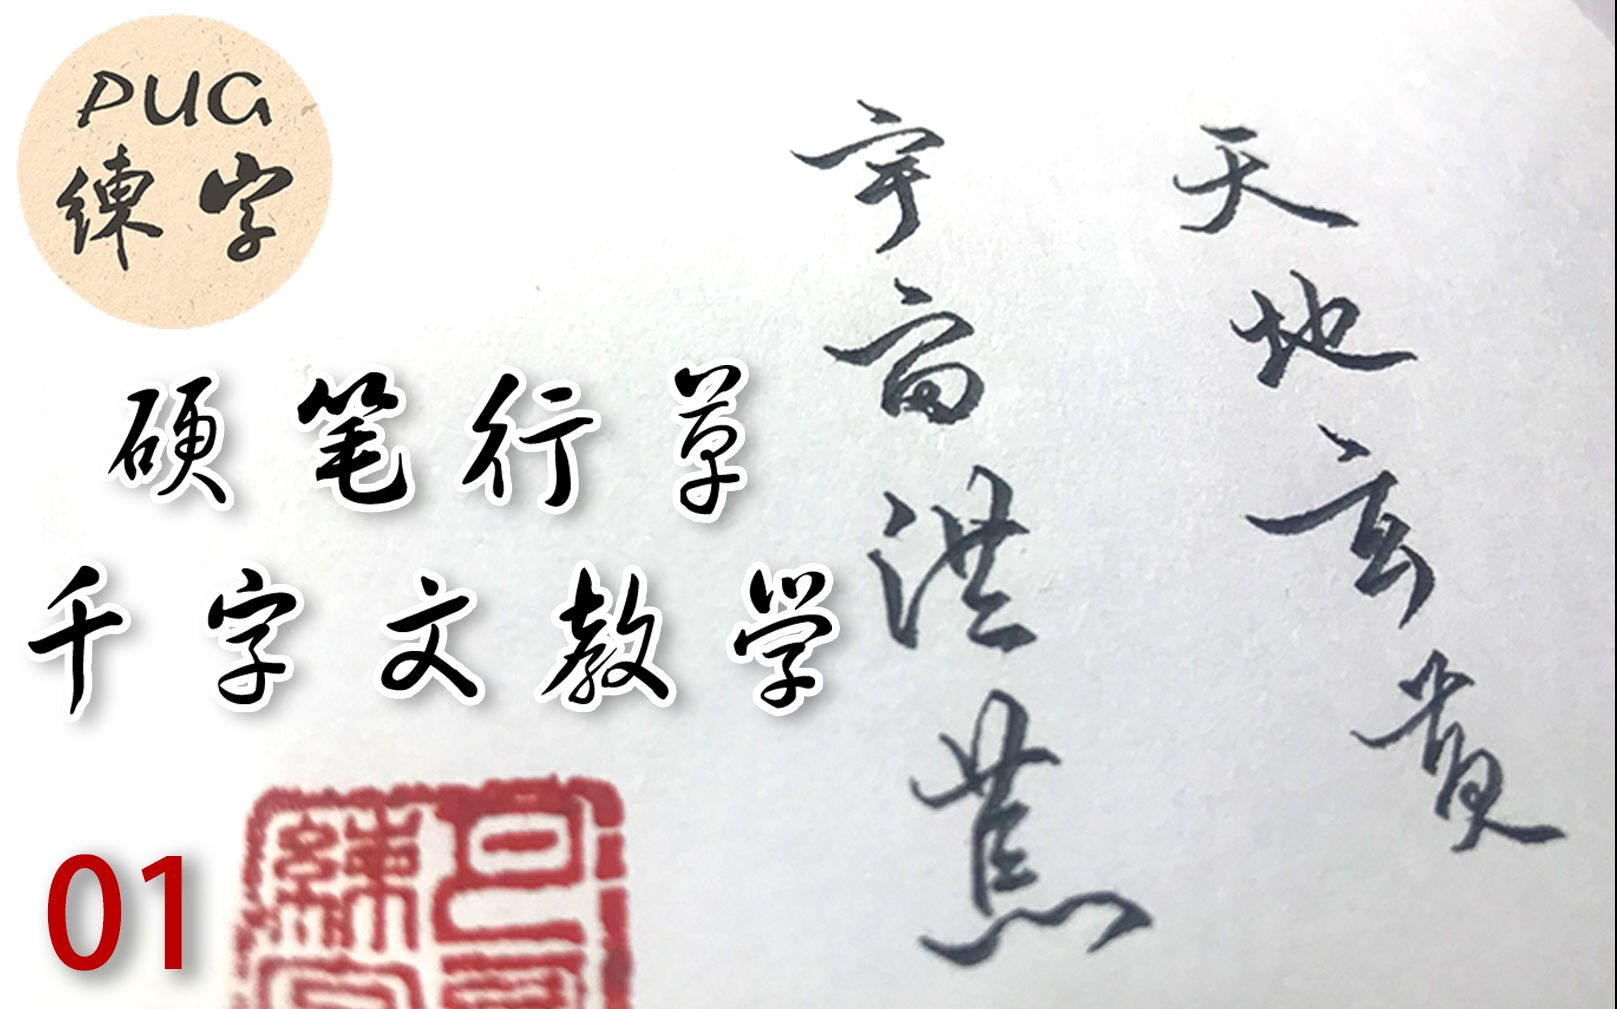 PUG
練字
硬笔行草
千字文教学
01
天地玄黄
宇宙洪荒